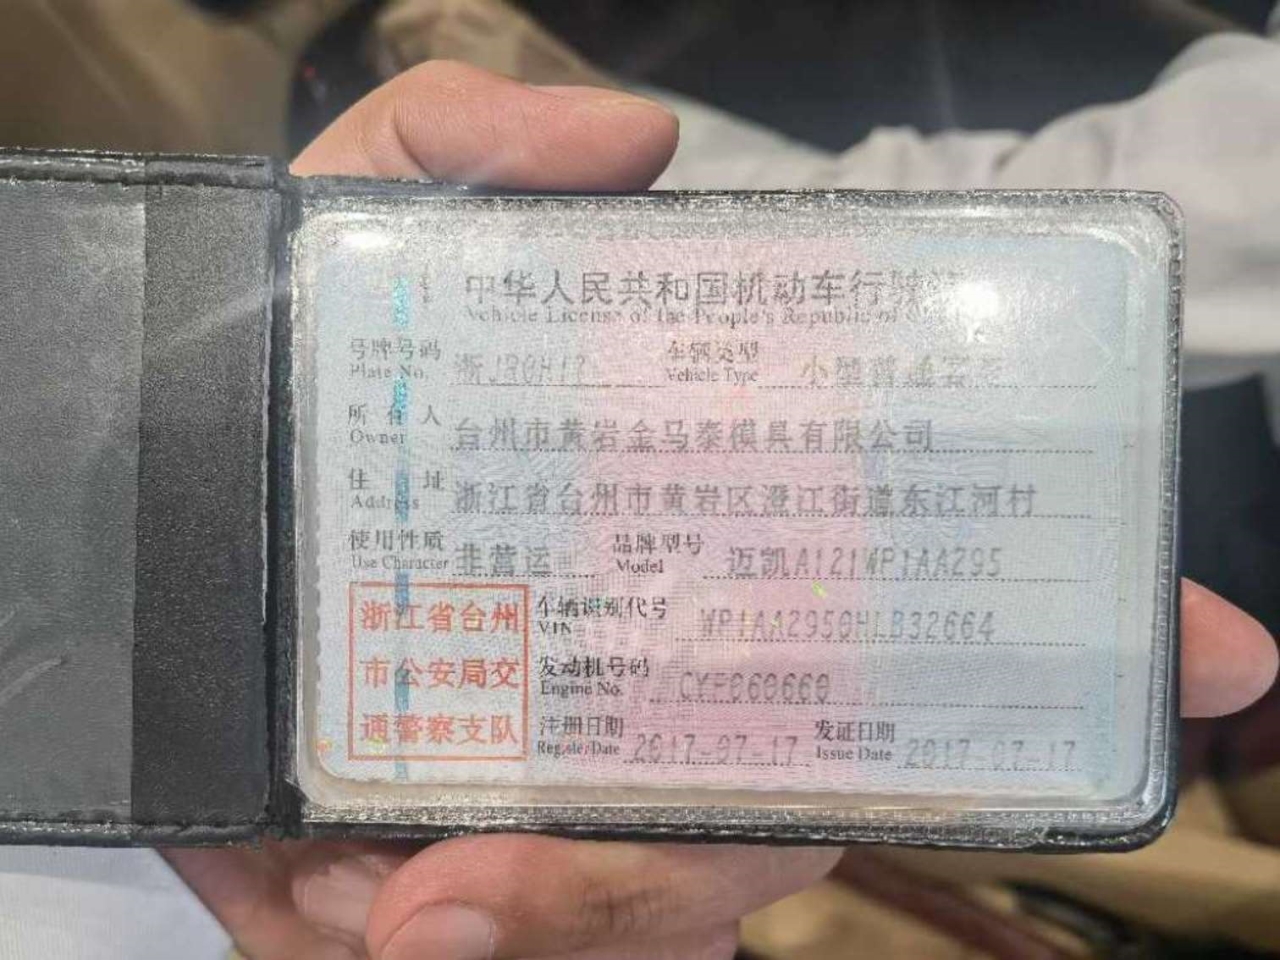 中华人民共和国机动车行驶
Vehicle License of the People's Republic of
号牌号码
Plate No.
车辆类型 小型普通客车
Vehicle Type
所有人 台州市黄岩金马泰模具有限公司
Owner
住址 浙江省台州市黄岩区澄江街道东江河村
Address
使用性质 非营运 品牌型号 迈凯A121WP1AA295
Use Character Model
浙江省台州
市公安局交
通警察支队
车辆识别代号 WP1AA2950HLB32664
VIN
发动机号码
Engine No.
注册日期 2017-07-17 发证日期 2017-07-17
Register Date Issue Date